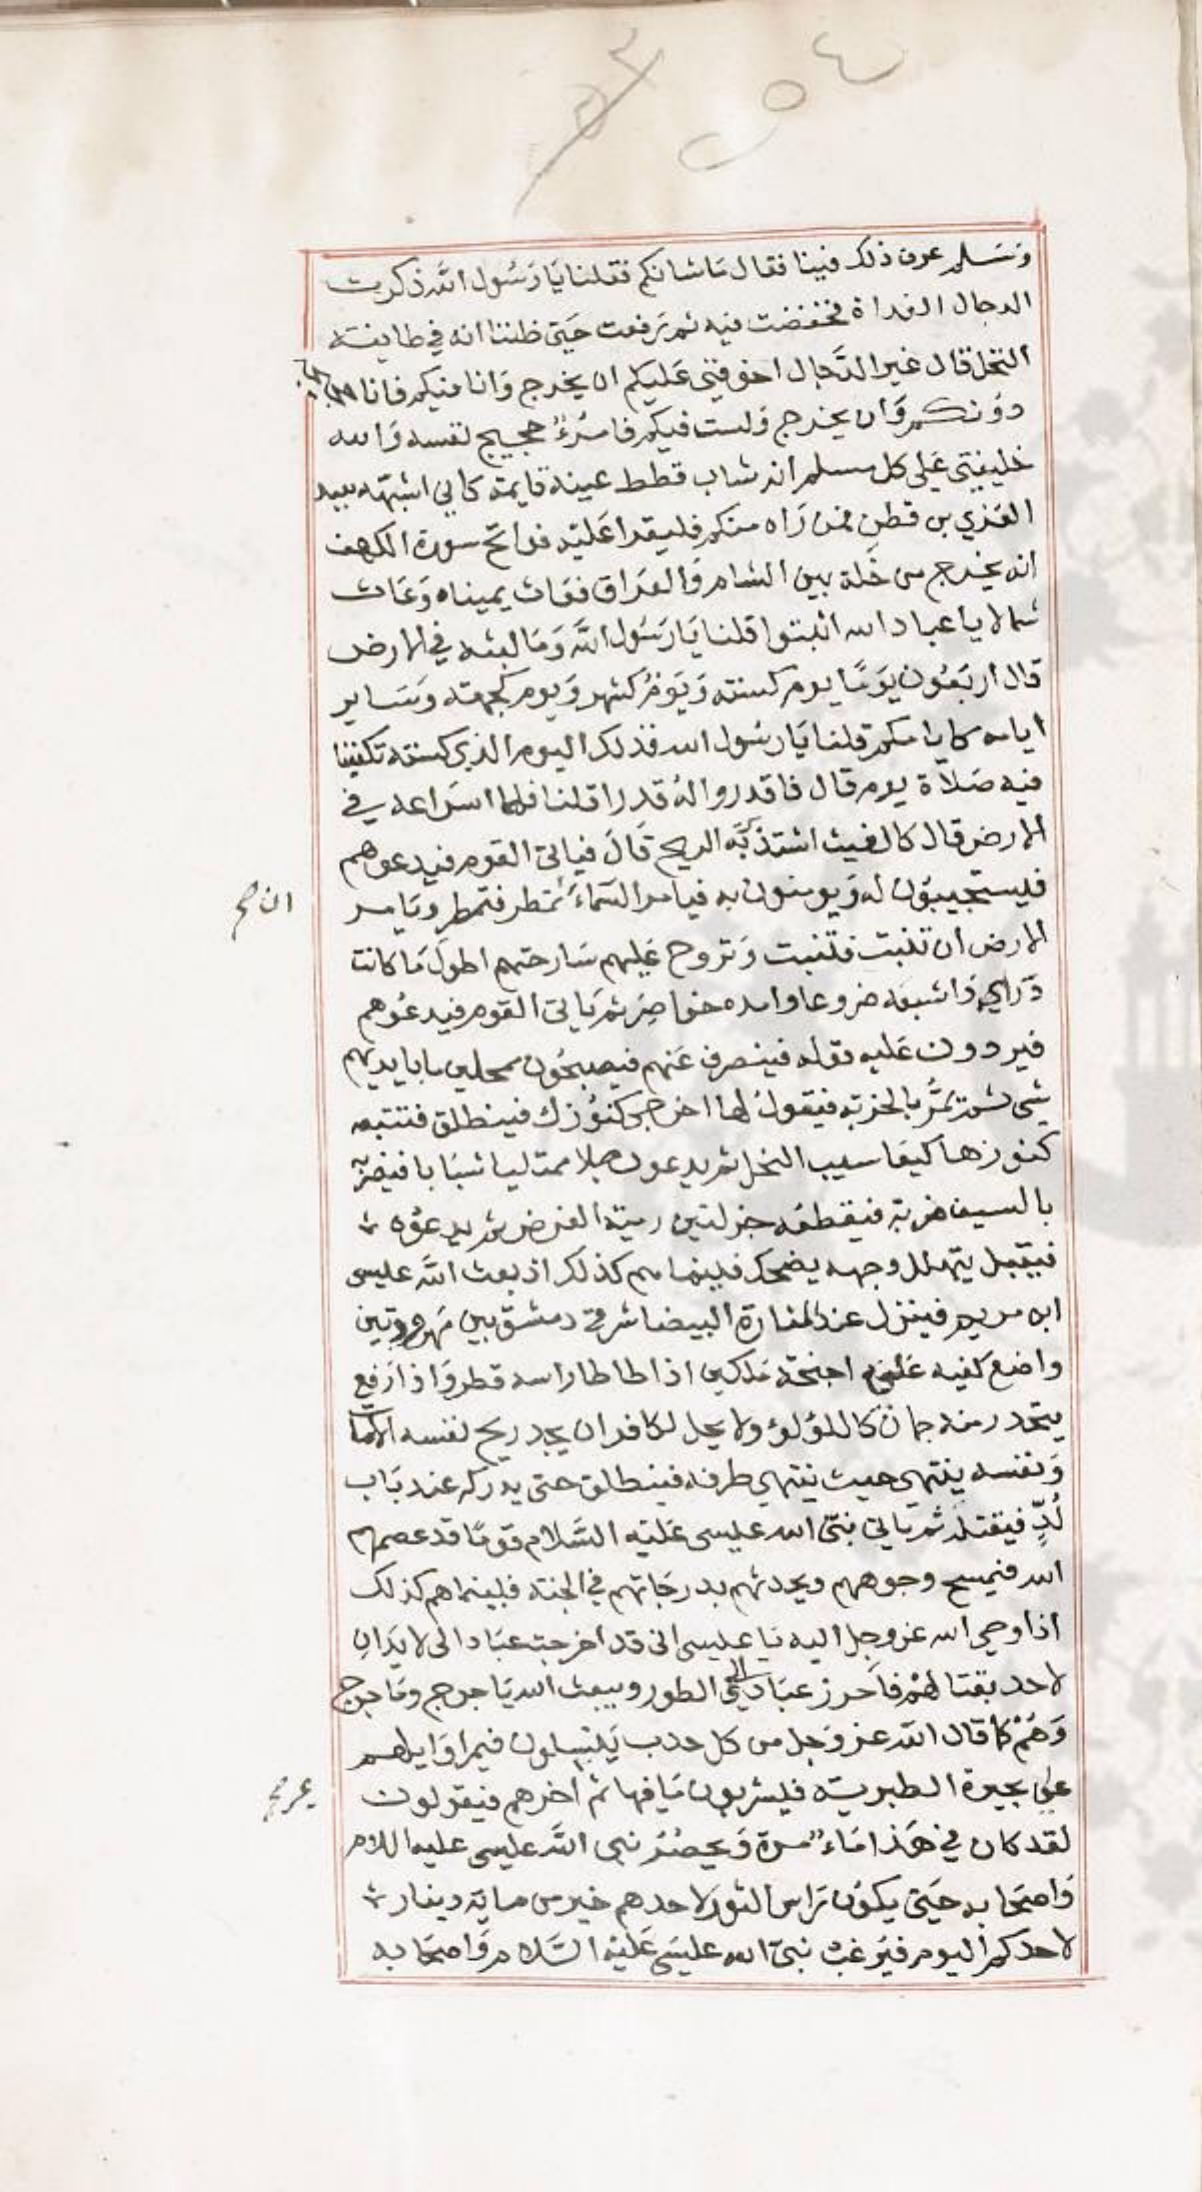 ٥٤
٥٣
وسلم عرف ذلك فينا فقال ما شانكم فقلنا يا رسول الله ذكرت
الدجال الغداة فخفضت فيه ثم رفعت حتى ظننا انه في طايفة
النخل قال غير الدجال اخوفني عليكم ان يخرج وانا فيكم فانا
دونكم وان يخرج ولست فيكم فامرءٌ حجيج نفسه والله
خليفتي على كل مسلم انه شاب قطط عينه قايمة كاني اشبهه بعبد
العزي بن قطن فمن راه منكم فليقرا عليه فواتح سورة الكهف
انه يخرج من خلة بين الشام والعراق فعاث يمينا وعاث
شمالا يا عباد الله اثبتوا قلنا يا رسول الله وما لبثه في الارض
قال اربعون يومًا يوم كسنته ويومٌ كشهر ويوم كجمعته وساير
ايامه كايامكم قلنا يا رسول الله فذلك اليوم الذي كسنته تكفينا
فيه صلاة يوم قال فاقدروا له قدرا قلنا فما اسراعه في
الارض قال كالغيث اشتد به الريح قال فياتي القوم فيدعوهم
فليستجيبون له ويومنون به فيامر السماء تمطر فتمطر ويامر
ان صح
الارض ان تنبت فتنبت وتروح عليهم سارحتهم اطول ما كانت
ذراي واشبعه ضروعا وامده خواصر ثم ياتي القوم فيدعوهم
فيردون عليه قوله فينصرف عنهم فيصبحون ممحلين ما بايديهم
شي ثم يمر بالخربة فيقول لها اخرجي كنوزك فينطلق فتتبعه
كنوزها كيعاسيب النخل ثم يدعون رجلا ممتليا شبابا فيضربه
بالسيف ضربة فيقطعه جزلتين رمية الغرض ثم يدعوه
فيقبل يتهلل وجهه يضحك فبينما هم كذلك اذ بعث الله عيسى
ابن مريم فينزل عند المنارة البيضا شرقي دمشق بين مهروتين
واضع كفيه على اجنحة ملكين اذا طاطا راسه قطر واذا رفع
يتحدر منه جمان كاللؤلؤ ولا يحل لكافر ان يجد ريح نفسه الا مات
ونفسه ينتهى حيث ينتهي طرفه فينطلق حتى يدركه عند باب
لُدٍّ فيقتله ثم ياتي نبي الله عيسى عليه السلام قومًا قد عصمهم
الله فيمسح وجوههم ويحدثهم بدرجاتهم في الجنة فبينما هم كذلك
اذا وحى الله عز وجل اليه يا عيسى اني قد اخرجت عبادا لي لا يدان
لاحد بقتالهم فاحرز عبادي الى الطور ويبعث الله ياجوج وماجوج
وهم كما قال الله عز وجل من كل حدب ينسلون فيمر اوايلهم
على بحيرة الطبرية فيشربون ما فيها ثم اخرهم فيقولون
يمر صح
لقد كان في هذا ماءٌ مرة ويحصر نبي الله عيسى عليه السلام
واصحابه حتى يكون راس الثور لاحدهم خير من ماية دينار
لاحدكم اليوم فيرغب نبي الله عيسى عليه السلام واصحابه